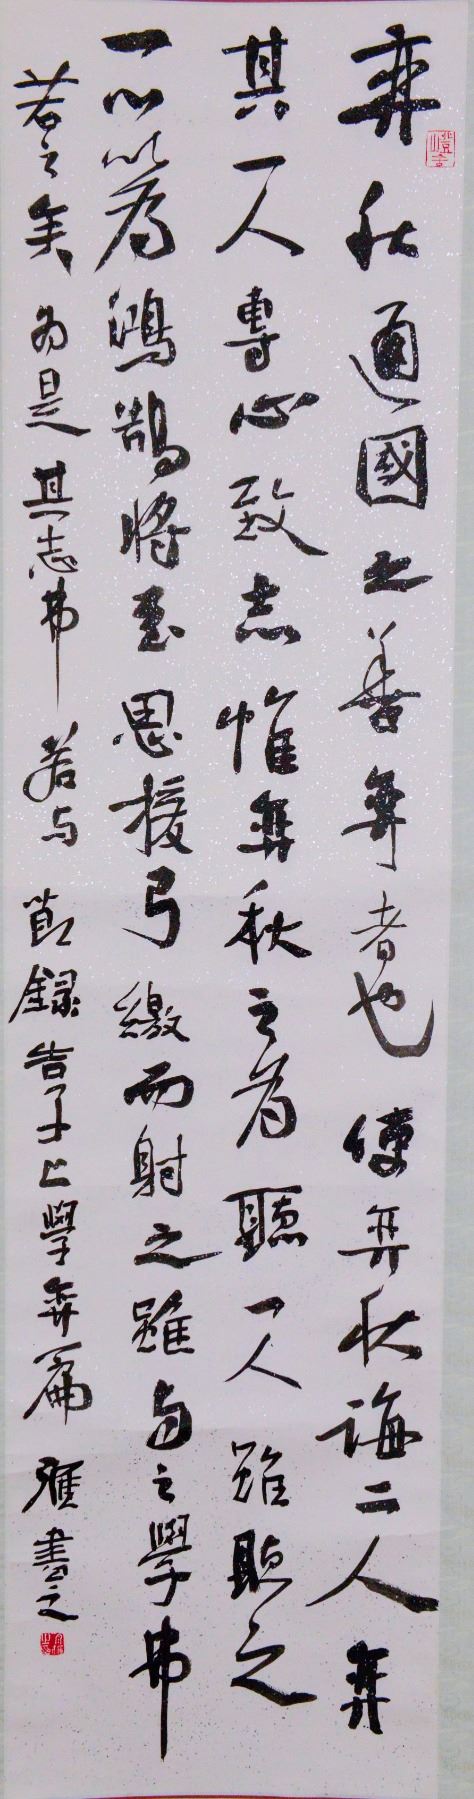 弈秋通國之善弈者也使弈秋誨二人弈
其一人專心致志惟弈秋之為聽一人雖聽之
一心以為鴻鵠將至思援弓繳而射之雖与之學弗
若之矣为是其志弗若与節錄告子上學弈篇書之